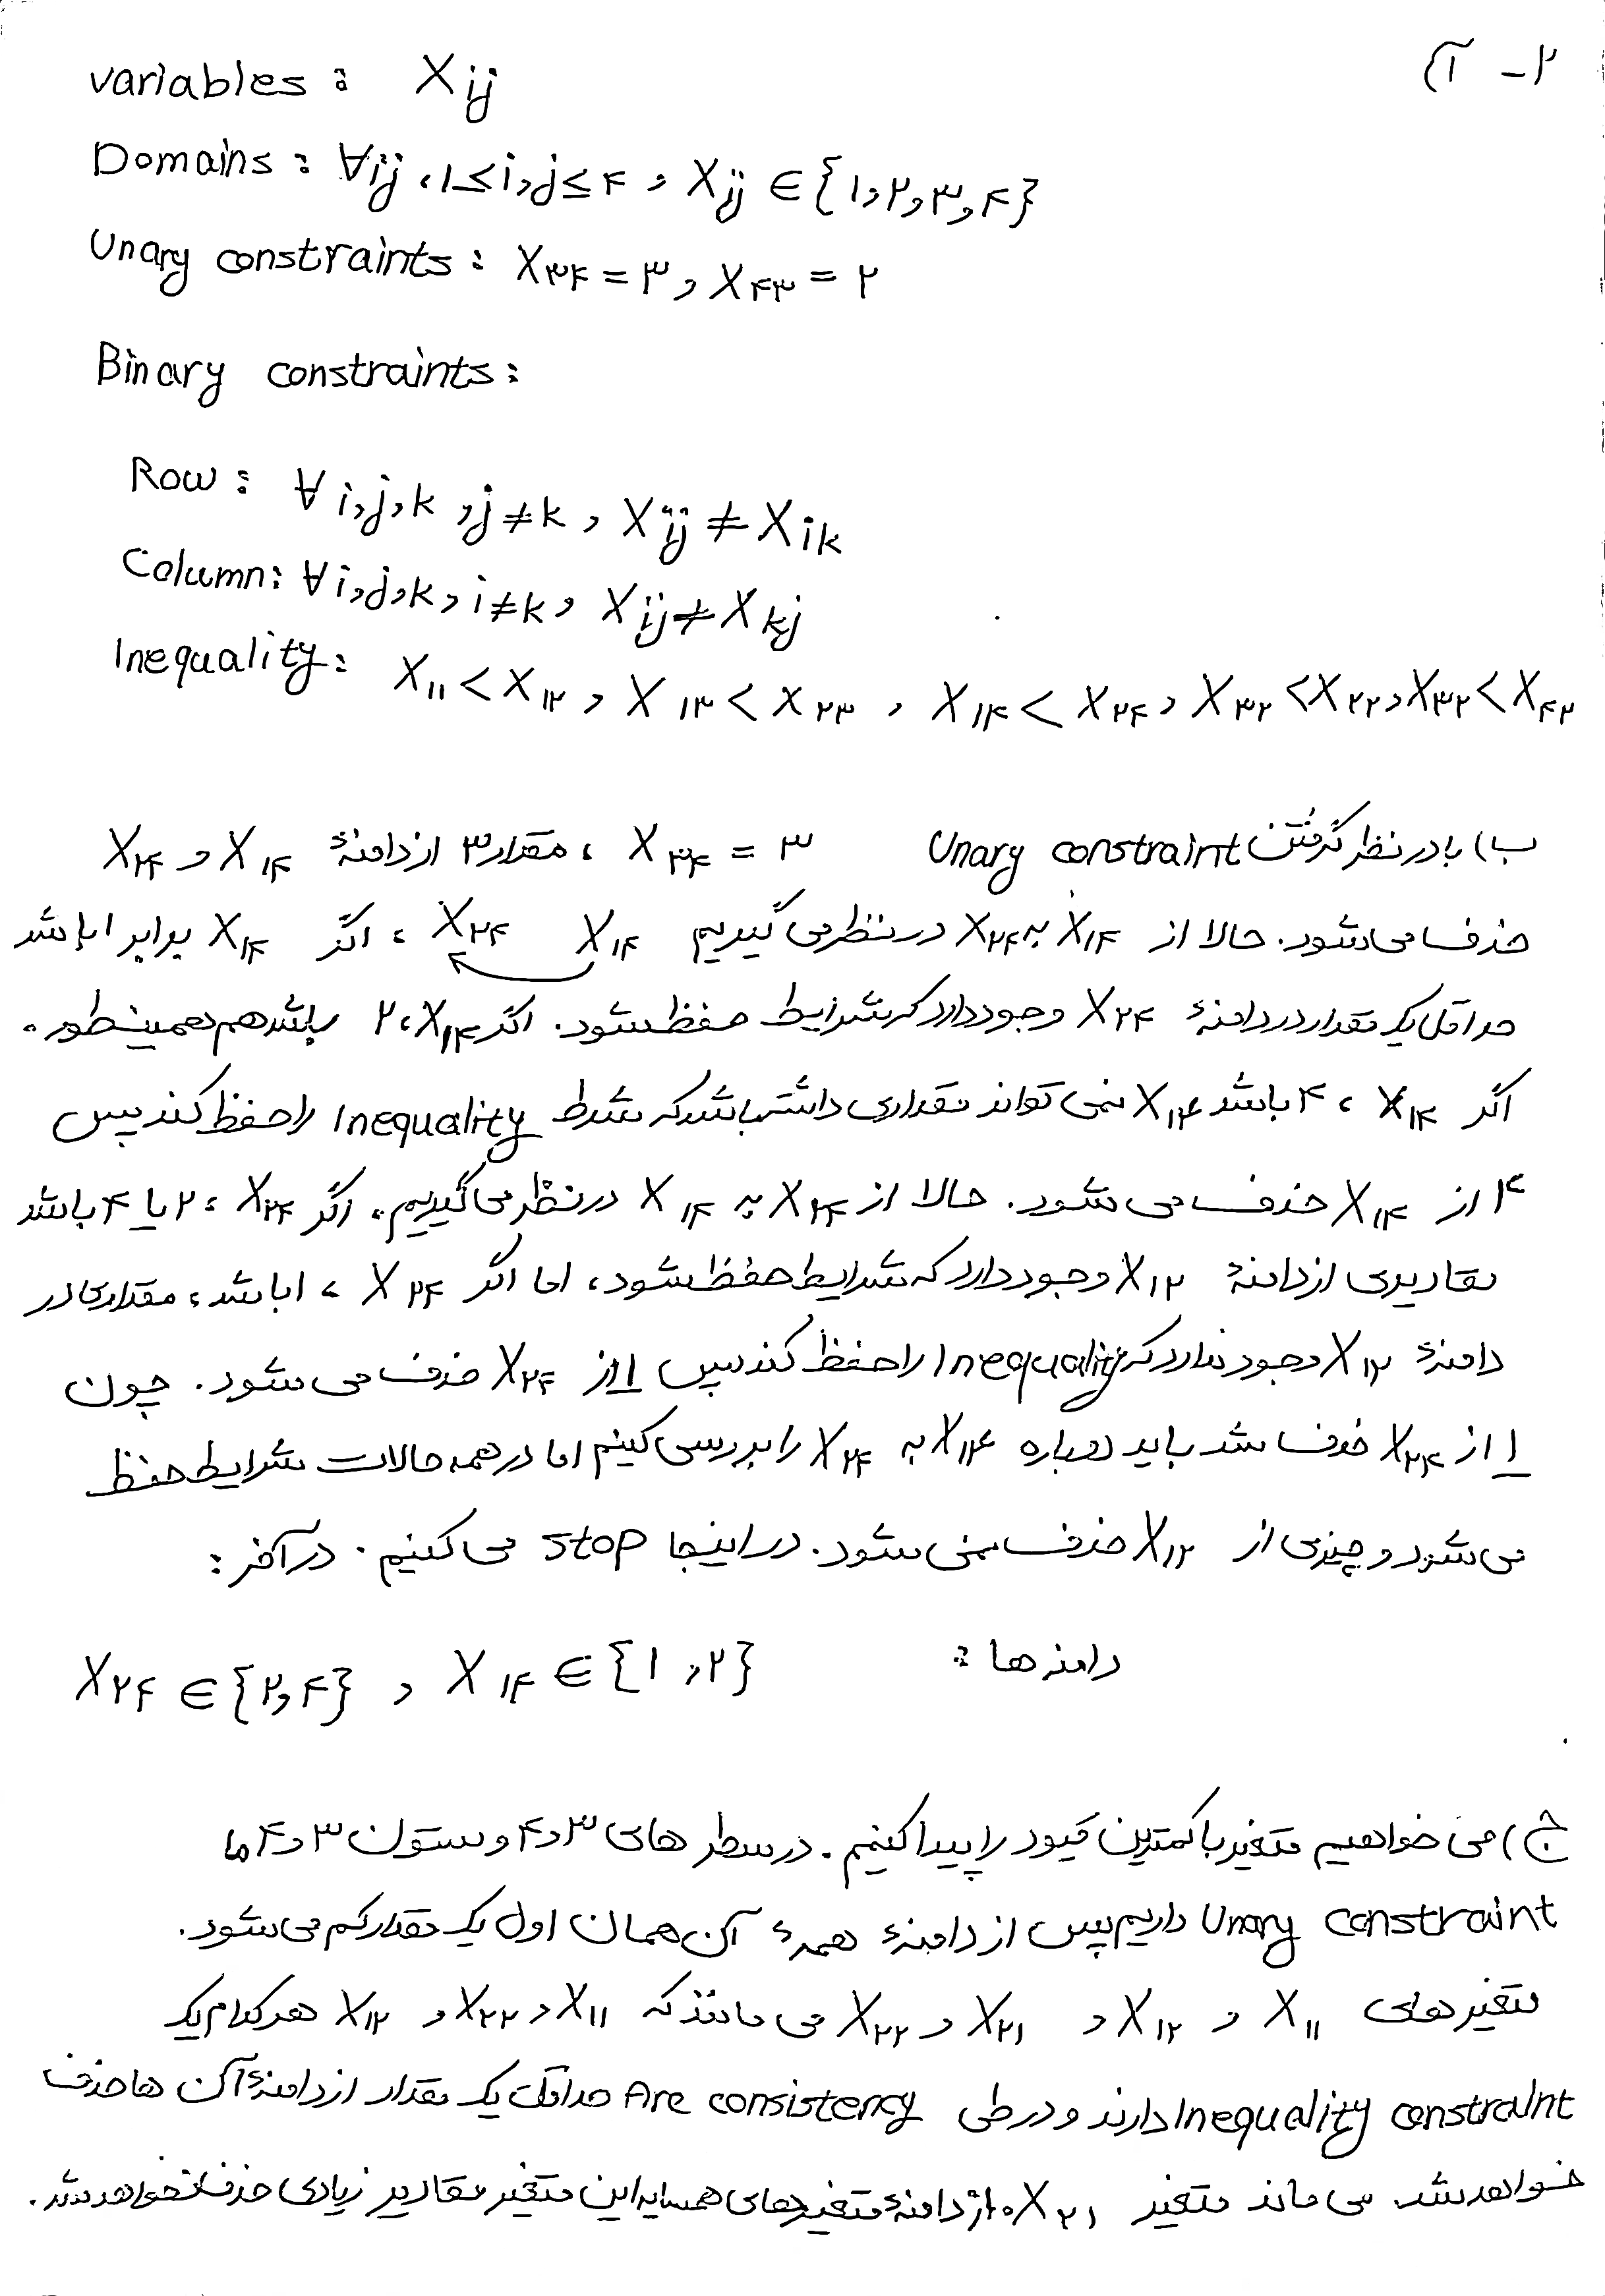 ۲- آ)
variables : Xij
Domains : ∀ij ، ۱≤i,j≤۴ , Xij ∈ {۱,۲,۳,۴}
Unary constraints : X۳۴ = ۳ , X۴۳ = ۲
Binary constraints :
Row : ∀ i,j,k , j≠k , Xij ≠ Xik
Column : ∀ i,j,k , i≠k , Xij ≠ Xkj
Inequality : X۱۱ < X۱۲ , X۱۳ < X۲۳ , X۱۴ < X۲۴ , X۳۲ < X۲۲ , X۳۲ < X۴۲
ب) با در نظر گرفتن Unary constraint X۳۴ = ۳ ، مقدار ۳ از دامنهٔ X۱۴ و X۲۴
حذف می‌شود. حالا از X۱۴ به X۲۴ در نظر می گیریم X۱۴ X۲۴ ، اگر X۱۴ برابر ۱ باشد
حداقل یک مقدار در دامنهٔ X۲۴ وجود دارد که شرایط حفظ شود. اگر X۱۴ ، ۲ باشد هم همینطور.
اگر X۱۴ ، ۴ باشد X۲۴ نمی تواند مقداری داشته باشد که شرط Inequality را حفظ کند پس
۴ از X۱۴ حذف می شود. حالا از X۲۴ به X۱۴ در نظر می گیریم. اگر X۲۴ ، ۲ یا ۴ باشد
مقادیری از دامنهٔ X۱۴ وجود دارد که شرایط حفظ شود، اما اگر X۲۴ ، ۱ باشد، مقداری در
دامنهٔ X۱۴ وجود ندارد که Inequality را حفظ کند پس ۱ از X۲۴ حذف می شود. چون
۱ از X۲۴ حذف شد باید دوباره X۱۴ به X۲۴ را بررسی کنیم اما در همه حالات شرایط حفظ
می شود و چیزی از X۱۴ حذف نمی شود. در اینجا stop می کنیم. در آخر :
دامنه ها : X۲۴ ∈ {۲,۴} , X۱۴ ∈ {۱,۲}
ج) می خواهیم متغیر با کمترین قیود را پیدا کنیم. در سطر های ۳ و ۴ و ستون ۳ و ۴ ما
Unary constraint داریم پس از دامنهٔ همهٔ آن همان اول یک مقدار کم می شود.
متغیر های X۱۱ و X۱۲ و X۲۱ و X۲۲ می مانند که X۱۱ و X۲۲ و X۱۲ هر کدام یک
Inequality constraint دارند و در طی Arc consistency حداقل یک مقدار از دامنهٔ آن ها حذف
خواهد شد. می ماند متغیر X۲۱. از دامنهٔ متغیر های همسایه این متغیر مقادیر زیادی حذف نخواهد شد.